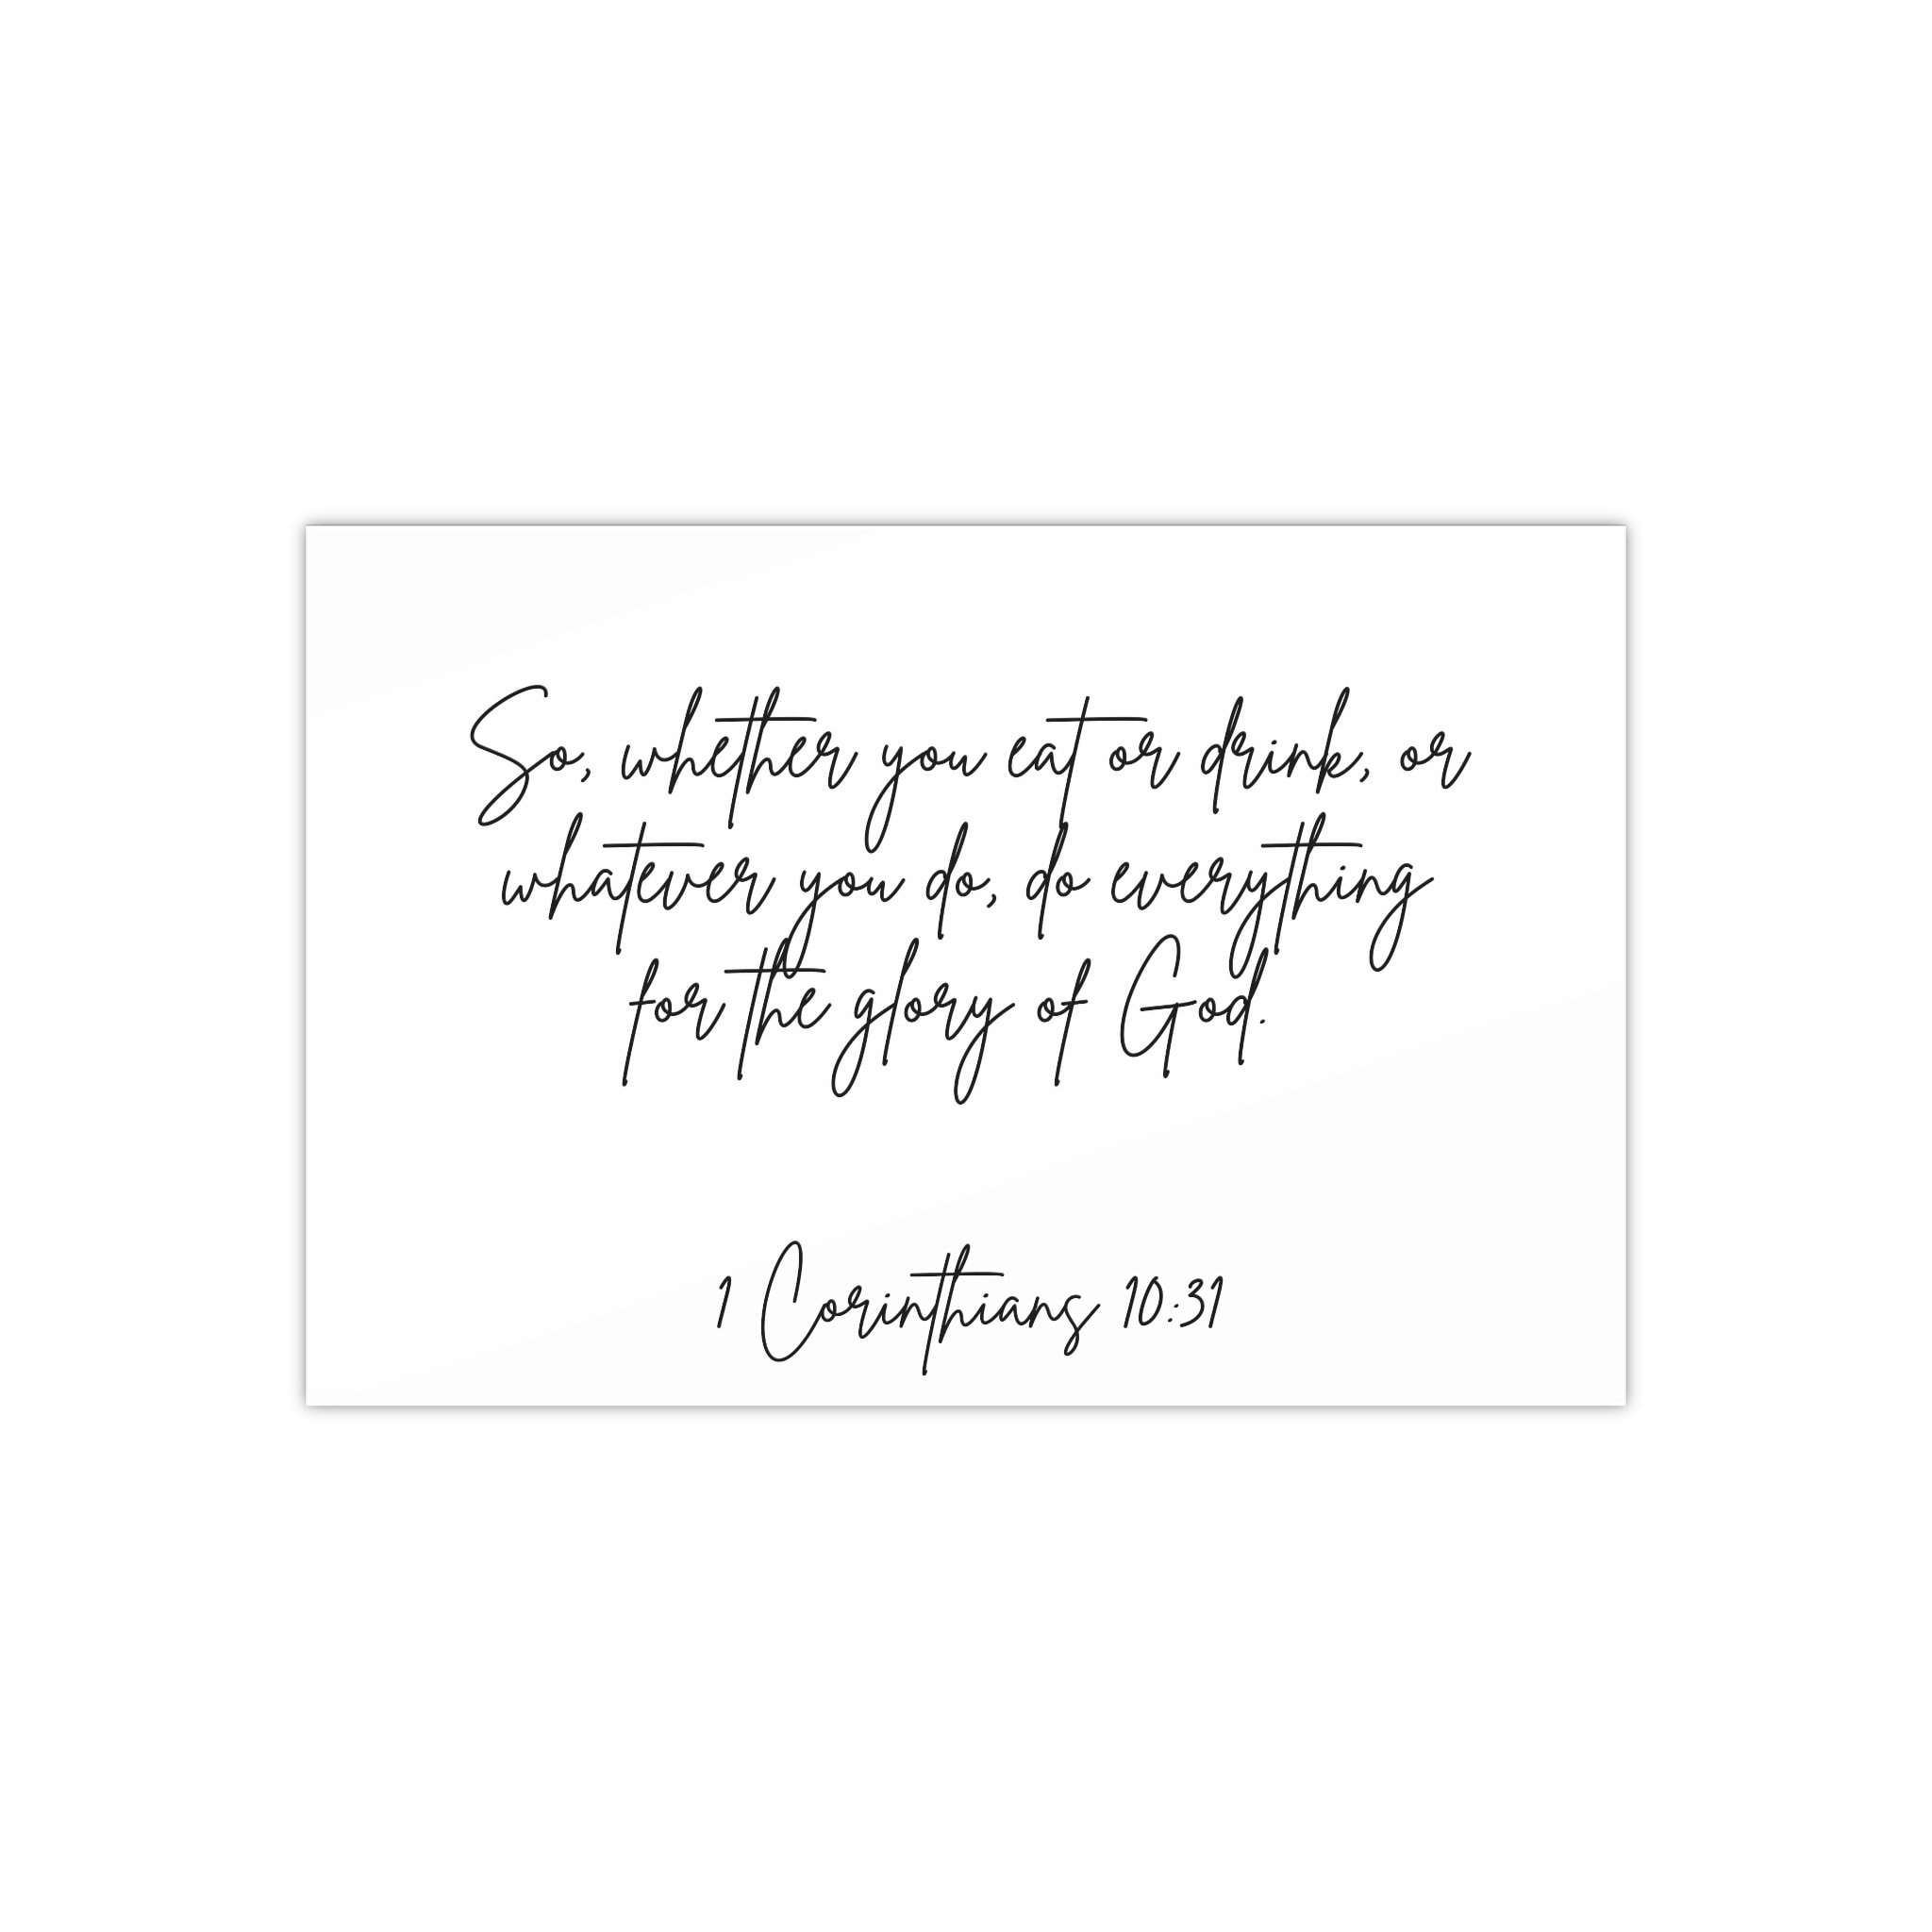 So, whether you eat or drink, or
whatever you do, do everything
for the glory of God.
1 Corinthians 10:31